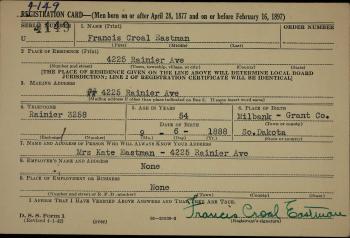 4149
REGISTRATION CARD—(Men born on or after April 28, 1877 and on or before February 16, 1897)
SERIAL NUMBER 1. NAME (Print) ORDER NUMBER
U 4149 Francis Croal Eastman
(First) (Middle) (Last)
2. PLACE OF RESIDENCE (Print)
4225 Rainier Ave
(Number and street) (Town, township, village, or city) (County) (State)
[THE PLACE OF RESIDENCE GIVEN ON THE LINE ABOVE WILL DETERMINE LOCAL BOARD
JURISDICTION; LINE 2 OF REGISTRATION CERTIFICATE WILL BE IDENTICAL]
3. MAILING ADDRESS
4225 Rainier Ave
[Mailing address if other than place indicated on line 2. If same insert word same]
4. TELEPHONE 5. AGE IN YEARS 6. PLACE OF BIRTH
Rainier 3258 54 Milbank - Grant Co.
DATE OF BIRTH (Town or county)
9 - 6 - 1888 So.Dakota
(Exchange) (Number) (Mo.) (Day) (Yr.) (State or country)
7. NAME AND ADDRESS OF PERSON WHO WILL ALWAYS KNOW YOUR ADDRESS
Mrs Kate Eastman - 4225 Rainier Ave
8. EMPLOYER'S NAME AND ADDRESS
None
9. PLACE OF EMPLOYMENT OR BUSINESS
None
(Number and street or R. F. D. number) (Town) (County) (State)
I AFFIRM THAT I HAVE VERIFIED ABOVE ANSWERS AND THAT THEY ARE TRUE.
Francis Croal Eastman
D. S. S. Form 1
(Revised 4-1-42) (over) (Registrant's signature)